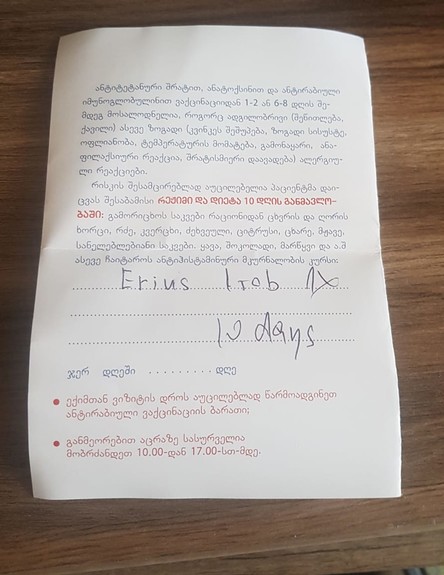 ანტიტეტანური შრატით, ანატოქსინით და ანტირაბიული
იმუნოგლობულინით ვაქცინაციიდან 1-2 ან 6-8 დღის შე-
მდეგ მოსალოდნელია, როგორც ადგილობრივი (შენითლება,
ქავილი) ასევე ზოგადი (კვინკეს შეშუპება, ზოგადი სისუსტე,
ოფლიანობა, ტემპერატურის მომატება, გამონაყარი, ანა-
ფილაქსიური რეაქცია, შრატისმიერი დაავადება) ალერგიუ-
ლი რეაქციები.
რისკის შესამცირებლად აუცილებელია პაციენტმა დაი-
ცვას შესაბამისი რეჟიმი და დიეტა 10 დღის განმავლო-
ბაში: გამორიცხოს საკვები რაციონიდან ცხვრის და ღორის
ხორცი, რძე, კვერცხი, ძეხვეული, ციტრუსი, ცხარე, მჟავე,
სანელებლებიანი საკვები. ყავა, შოკოლადი, მარწყვი და ა.შ
ასევე ჩაიტაროს ანტიჰისტამინური მკურნალობის კურსი:
Erius 1 tab 1X
10 days
ჯერ დღეში .......... დღე
● ექიმთან ვიზიტის დროს აუცილებლად წარმოადგინეთ
ანტირაბიული ვაქცინაციის ბარათი;
● განმეორებით აცრაზე სასურველია
მობრძანდეთ 10.00-დან 17.00-სთ-მდე.